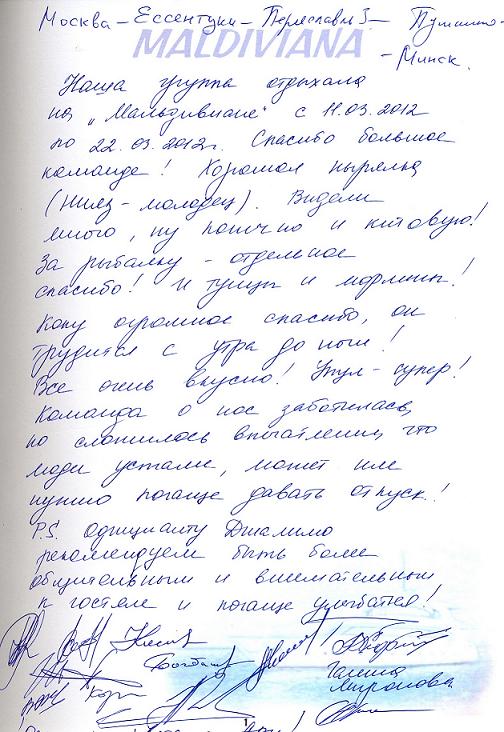 Москва – Ессентуки – Переславль З – Пущино –
MALDIVIANA
– Минск.
Наша группа отдыхала
на „Мальдивиане" с 11.03.2012
по 22.03.2012г. Спасибо большое
команде! Хорошая нырялка
(Нияз – молодец). Видели
много, ну конечно и китовую!
За рыбалку – отдельное
спасибо! И тунцы и марлины!
Коку огромное спасибо, он
трудится с утра до ночи!
Все очень вкусно! Укул – супер!
Команда о нас заботилась,
но сложилось впечатление, что
люди устали, может им
нужно почаще давать отпуск!
P.S. Официанту Джалило
рекомендуем быть более
общительным и внимательным
к гостям и почаще улыбаться!
Галина
Миронова